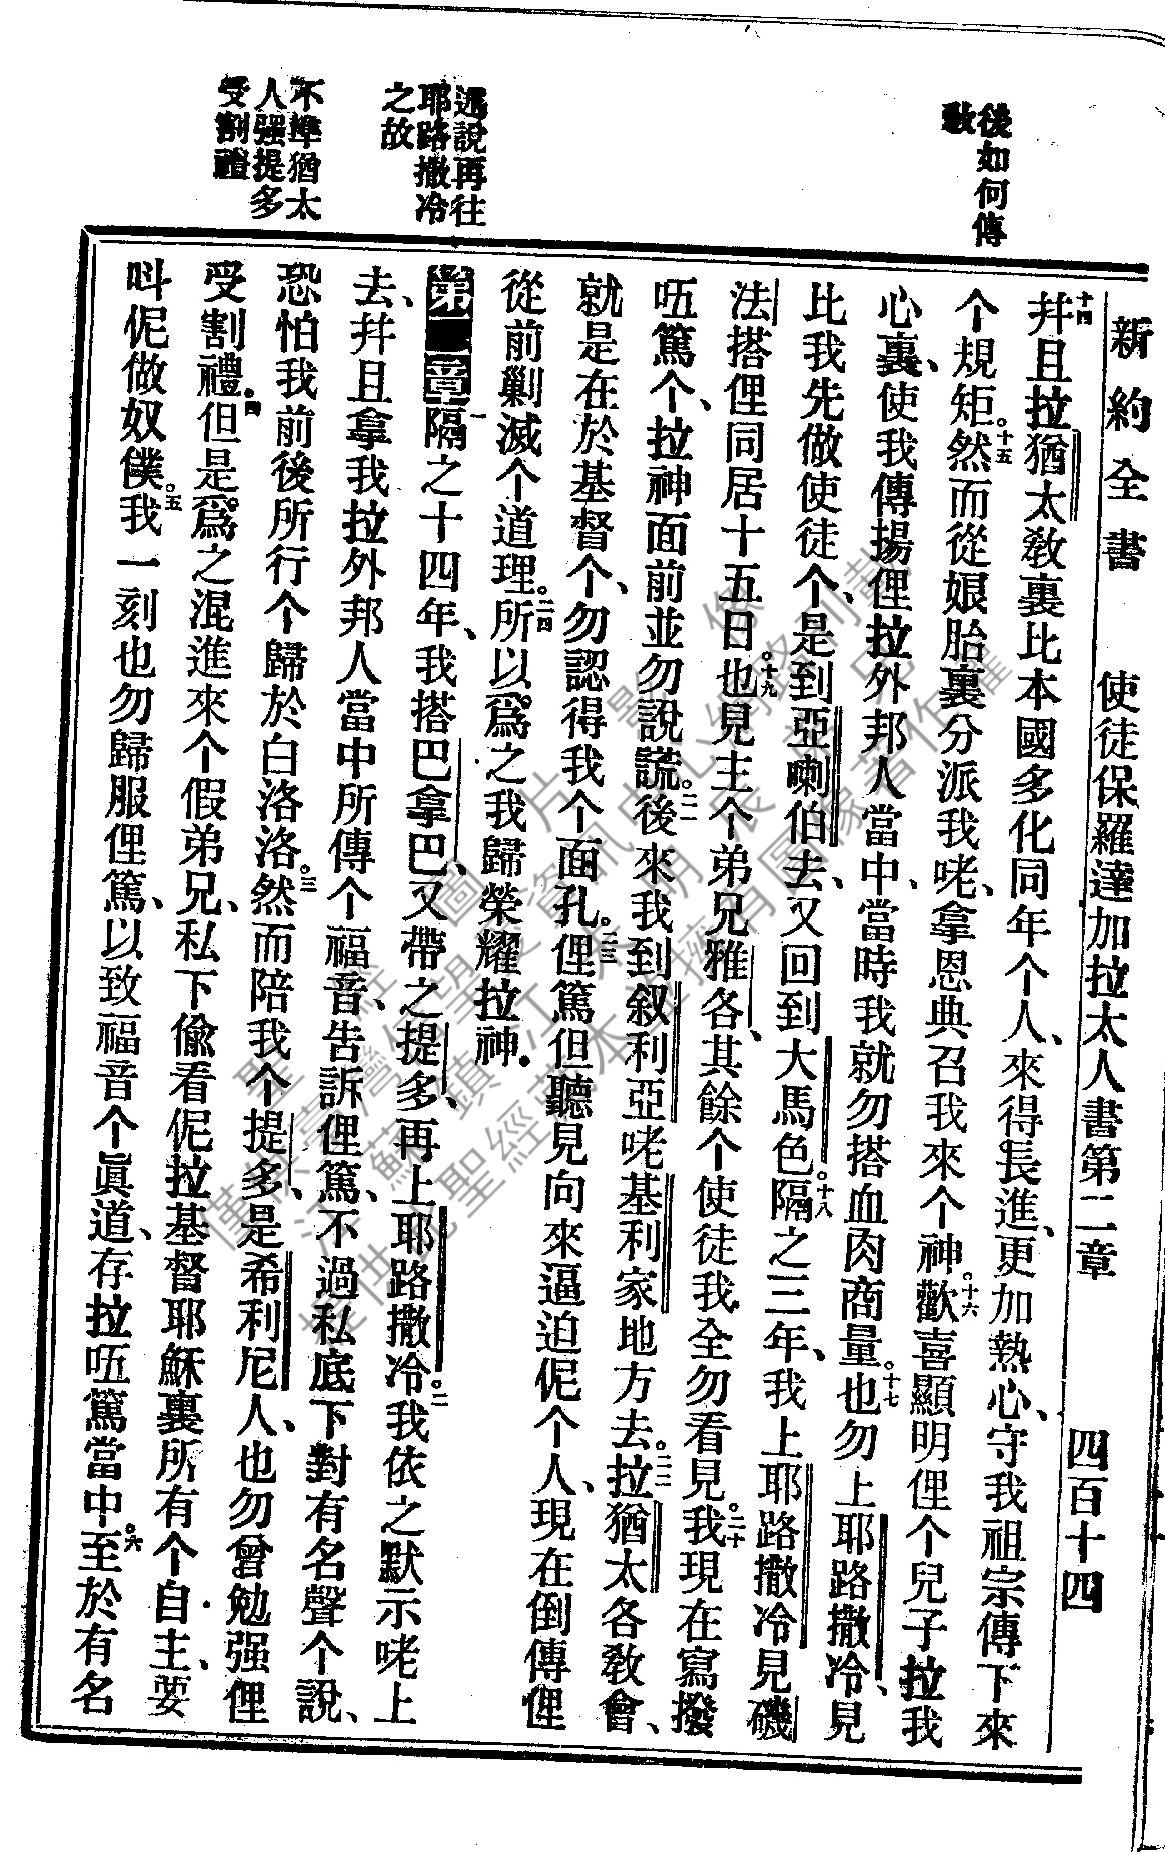 新約全書 使徒保羅達加拉太人書第二章 四百十四
後如何傳
敎
十四幷且拉猶太敎裏比本國多化同年个人、來得長進、更加熱心、守我祖宗傳下來
个規矩。十五然而從娘胎裏分派我咾、拿恩典召我來个神。十六歡喜顯明俚个兒子拉我
心裏、使我傳揚俚拉外邦人當中、當時我就勿搭血肉商量。十七也勿上耶路撒冷、見
比我先做使徒个、是到亞喇伯去、又回到大馬色。十八隔之三年、我上耶路撒冷見磯
法、搭俚同居十五日。十九也見主个弟兄雅各、其餘个使徒我全勿看見。二十我現在寫撥
唔篤个、拉神面前並勿說謊。二一後來我到叙利亞咾基利家地方去。二二拉猶太各敎會、
就是在於基督个、勿認得我个面孔。二三俚篤但聽見向來逼迫伲个人、現在倒傳俚
從前剿滅个道理。二四所以爲之我歸榮耀拉神。
遞說再往
耶路撒冷
之故
第二章 一隔之十四年、我搭巴拿巴、又帶之提多、再上耶路撒冷。二我依之默示咾上
去、幷且拿我拉外邦人當中所傳个福音、告訴俚篤、不過私底下對有名聲个說、
恐怕我前後所行个歸於白洛洛。三然而陪我个提多、是希利尼人、也勿曾勉强俚
不準猶太
人强提多
受割禮
受割禮。四但是爲之混進來个假弟兄、私下偷看伲拉基督耶穌裏所有个自主、要
呌伲做奴僕。五我一刻也勿歸服俚篤、以致福音个眞道、存拉唔篤當中。六至於有名